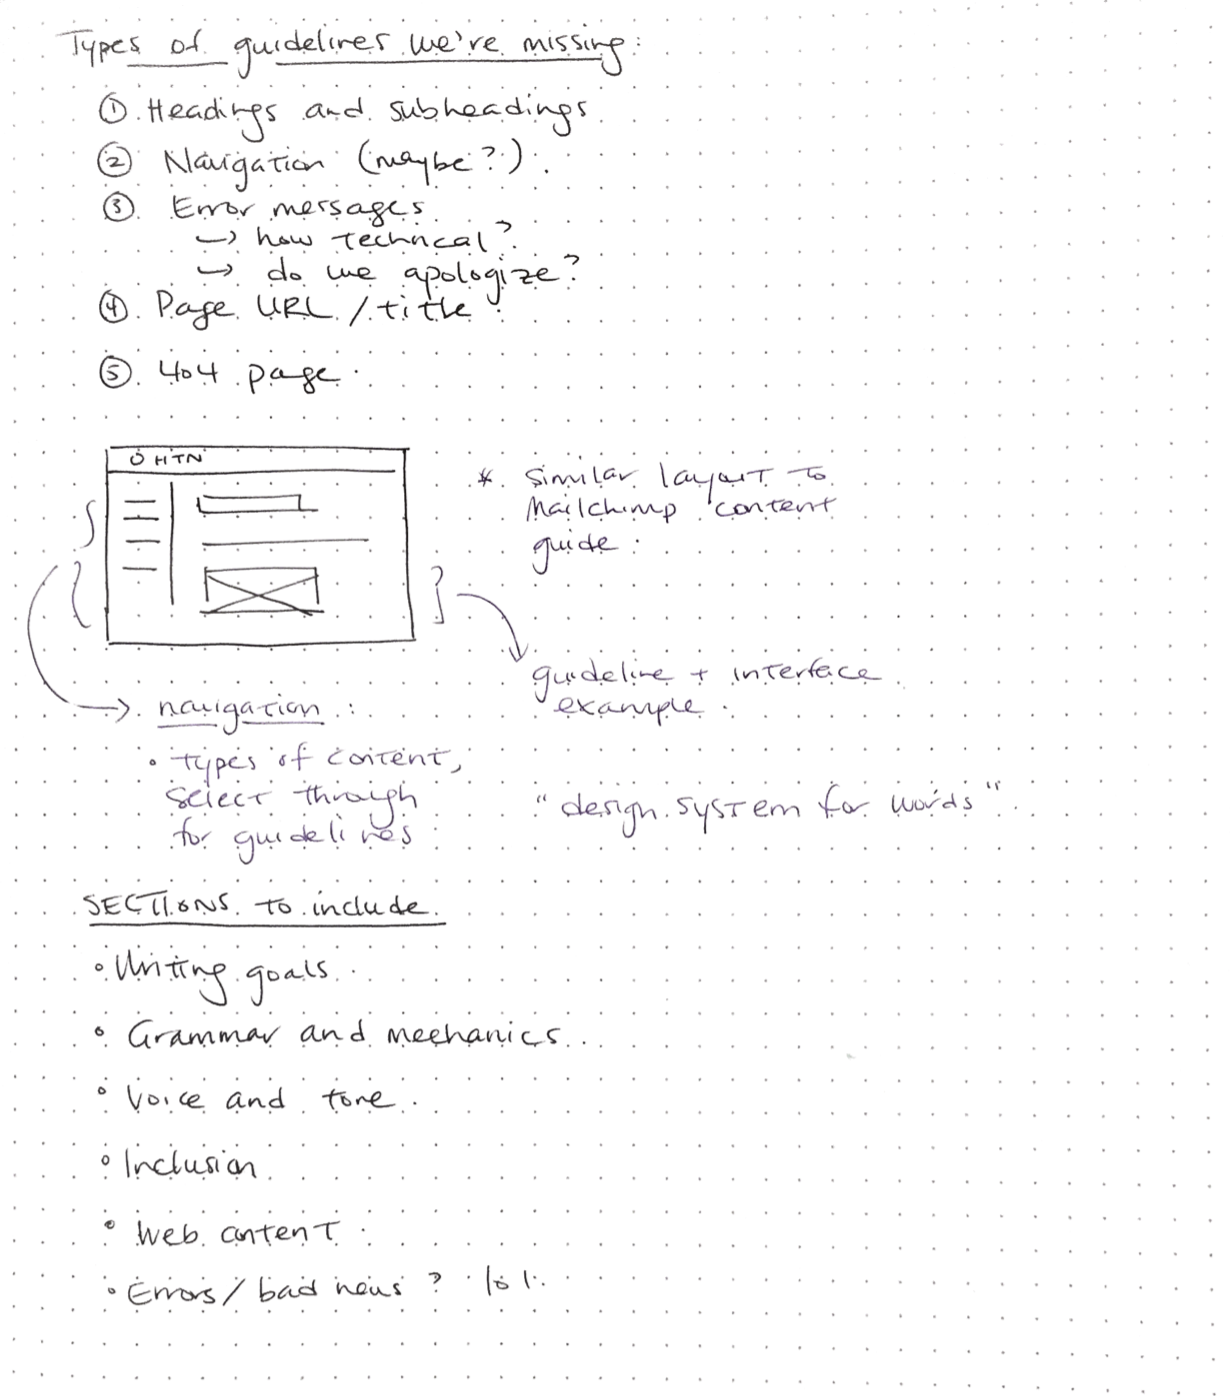 Types of guidelines we're missing:
① Headings and subheadings
② Navigation (maybe?)
③ Error messages
→ how technical?
→ do we apologize?
④ Page URL / title
⑤ 404 page
HTN
* similar layout to
Mailchimp content
guide
guideline + interface
example
→ navigation:
• types of content,
select through
for guidelines
"design system for words"
SECTIONS to include
• Writing goals
• Grammar and mechanics
• Voice and tone
• Inclusion
• Web content
• Errors / bad news? lol